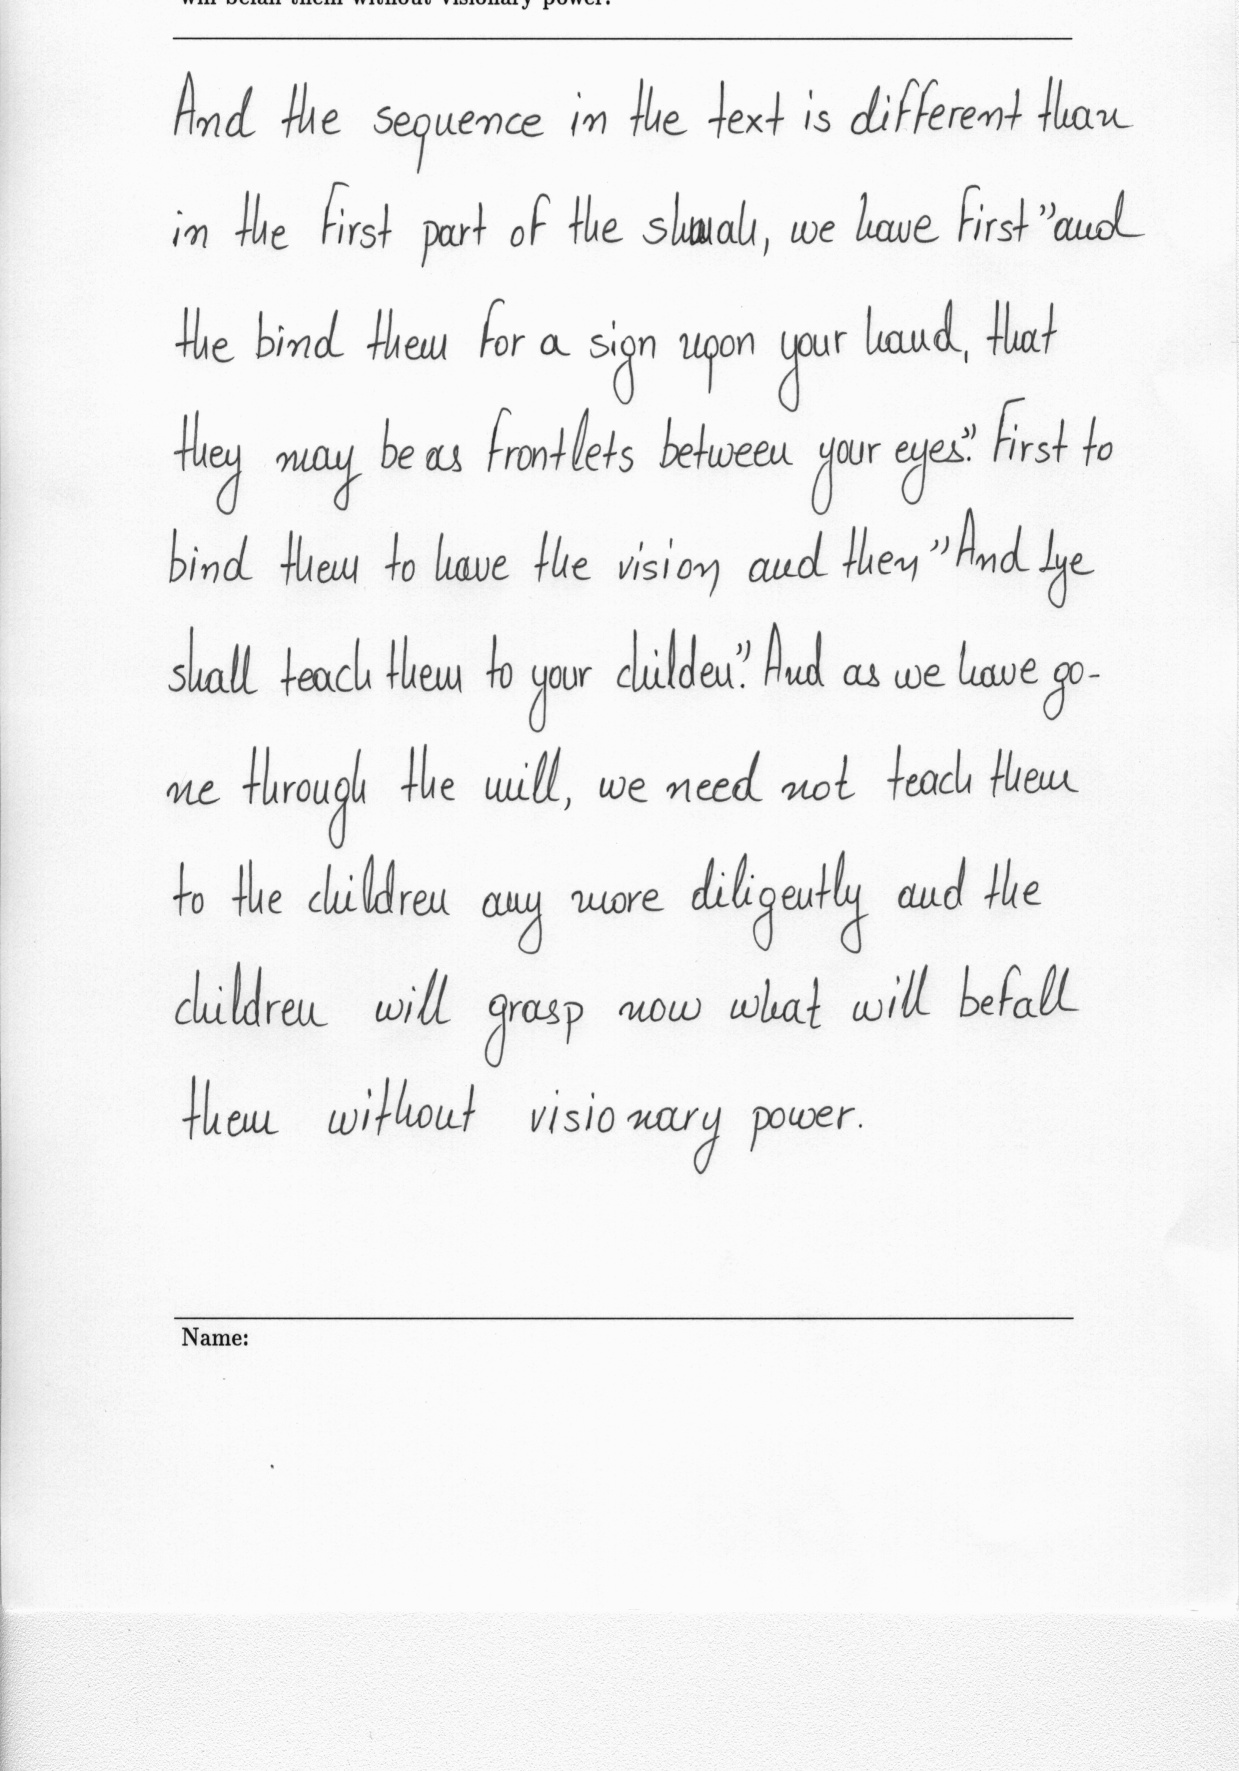 will befall them without visionary power.
And the sequence in the text is different than
in the first part of the shmah, we have first "and
the bind them for a sign upon your hand, that
they may be as frontlets between your eyes". First to
bind them to have the vision and then "And ye
shall teach them to your childen". And as we have go-
ne through the mill, we need not teach them
to the children any more diligently and the
children will grasp now what will befall
them without visionary power.
Name: